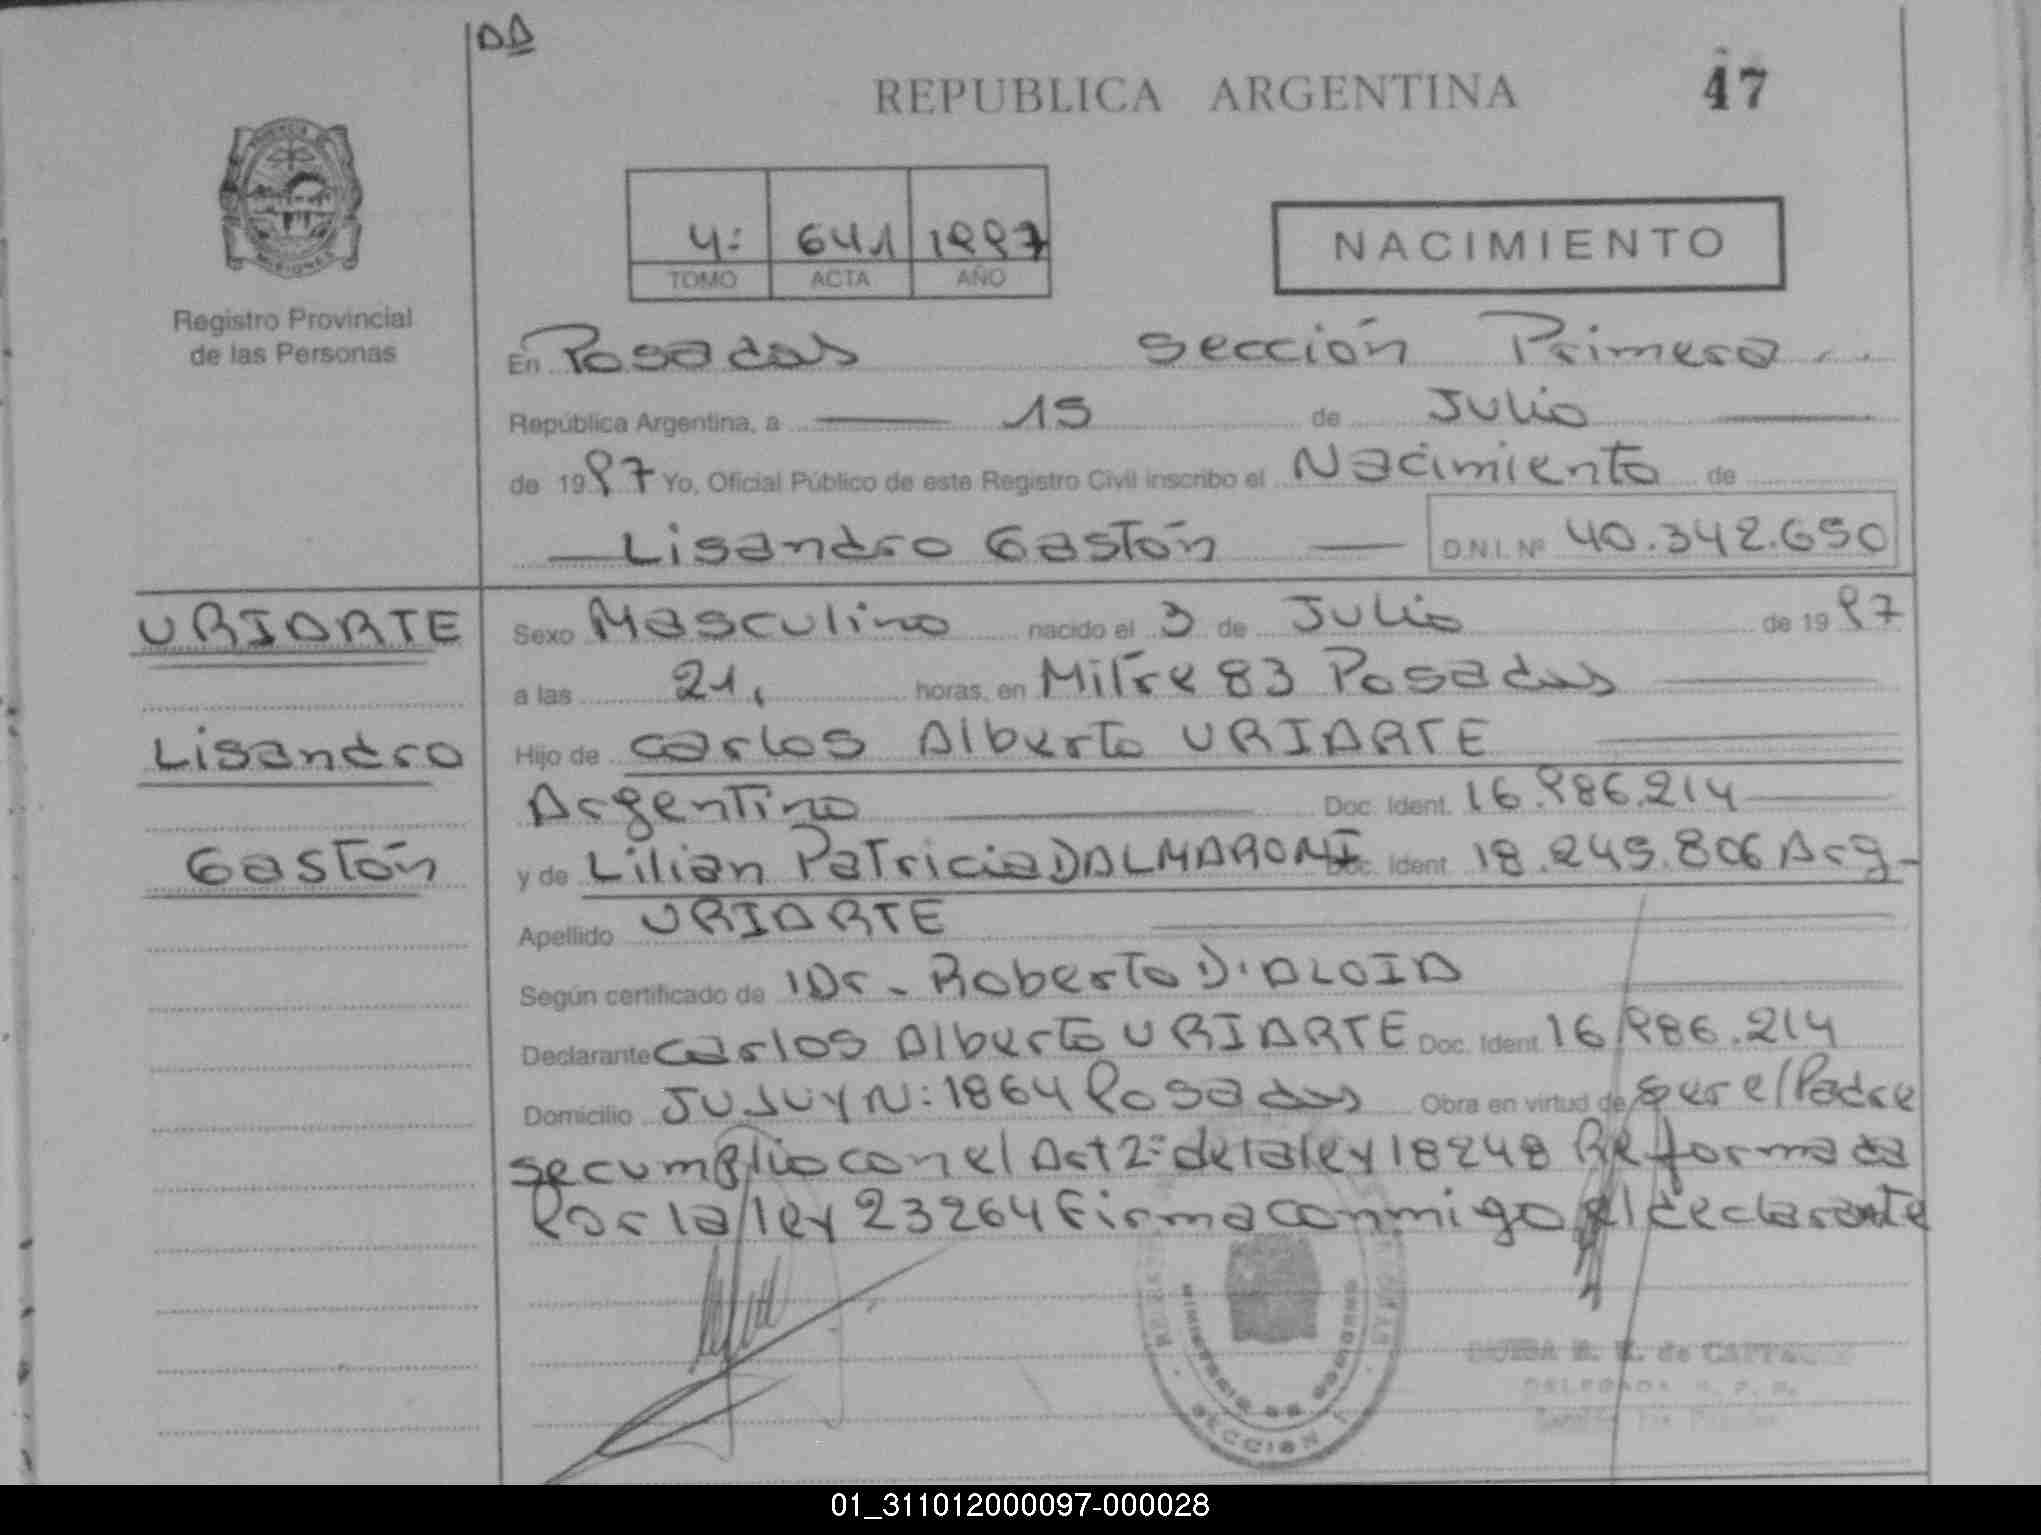 DD
REPUBLICA ARGENTINA 47
MISIONES
Registro Provincial
de las Personas
4: 641 1997
TOMO ACTA AÑO
NACIMIENTO
En Posadas sección Primera
República Argentina, a 15 de Julio
de 1997 Yo, Oficial Público de este Registro Civil inscribo el Nacimiento de
Lisandro Gastón D.N.I. Nº 40.342.650
URIARTE
Lisandro
Gastón
Sexo Masculino nacido el 3 de Julio de 1997
a las 21, horas, en Mitre 83 Posadas
Hijo de Carlos Alberto URIARTE
Argentino Doc. Ident. 16.986.214
y de Lilian Patricia DALMARONI Doc. Ident. 18.245.806 Arg-
Apellido URIARTE
Según certificado de Dr. Roberto D'ALOIA
Declarante Carlos Alberto URIARTE Doc. Ident. 16.986.214
Domicilio JUJUY N: 1864 Posadas Obra en virtud de ser el Padre
se cumplio con el Art 2: de la ley 18248 Reformada
Por la ley 23264 Firma conmigo el declarante
MINISTERIO DE GOBIERNO
SECCION 1
de
DELEGADA R. P. P.
01_311012000097-000028